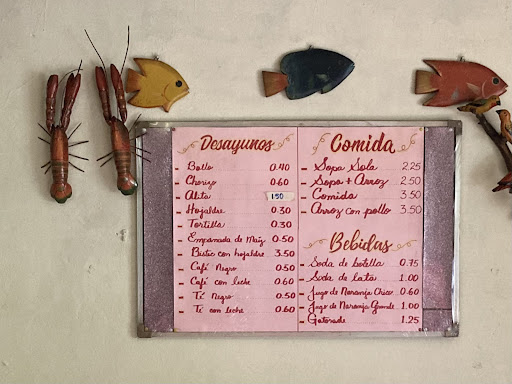 Desayunos
- Bollo 0.40
- Chorizo 0.60
- Alita 1.50
- Hojaldre 0.30
- Tortilla 0.30
- Empanada de Maíz 0.50
- Bistec con hojaldre 3.50
- Café Negro 0.50
- Café con leche 0.60
- Té Negro 0.50
- Té con leche 0.60
Comida
- Sopa Sola 2.25
- Sopa + Arroz 2.50
- Comida 3.50
- Arroz con pollo 3.50
Bebidas
- Soda de botella 0.75
- Soda de lata 1.00
- Jugo de Naranja Chico 0.60
- Jugo de Naranja Grande 1.00
- Gatorade 1.25